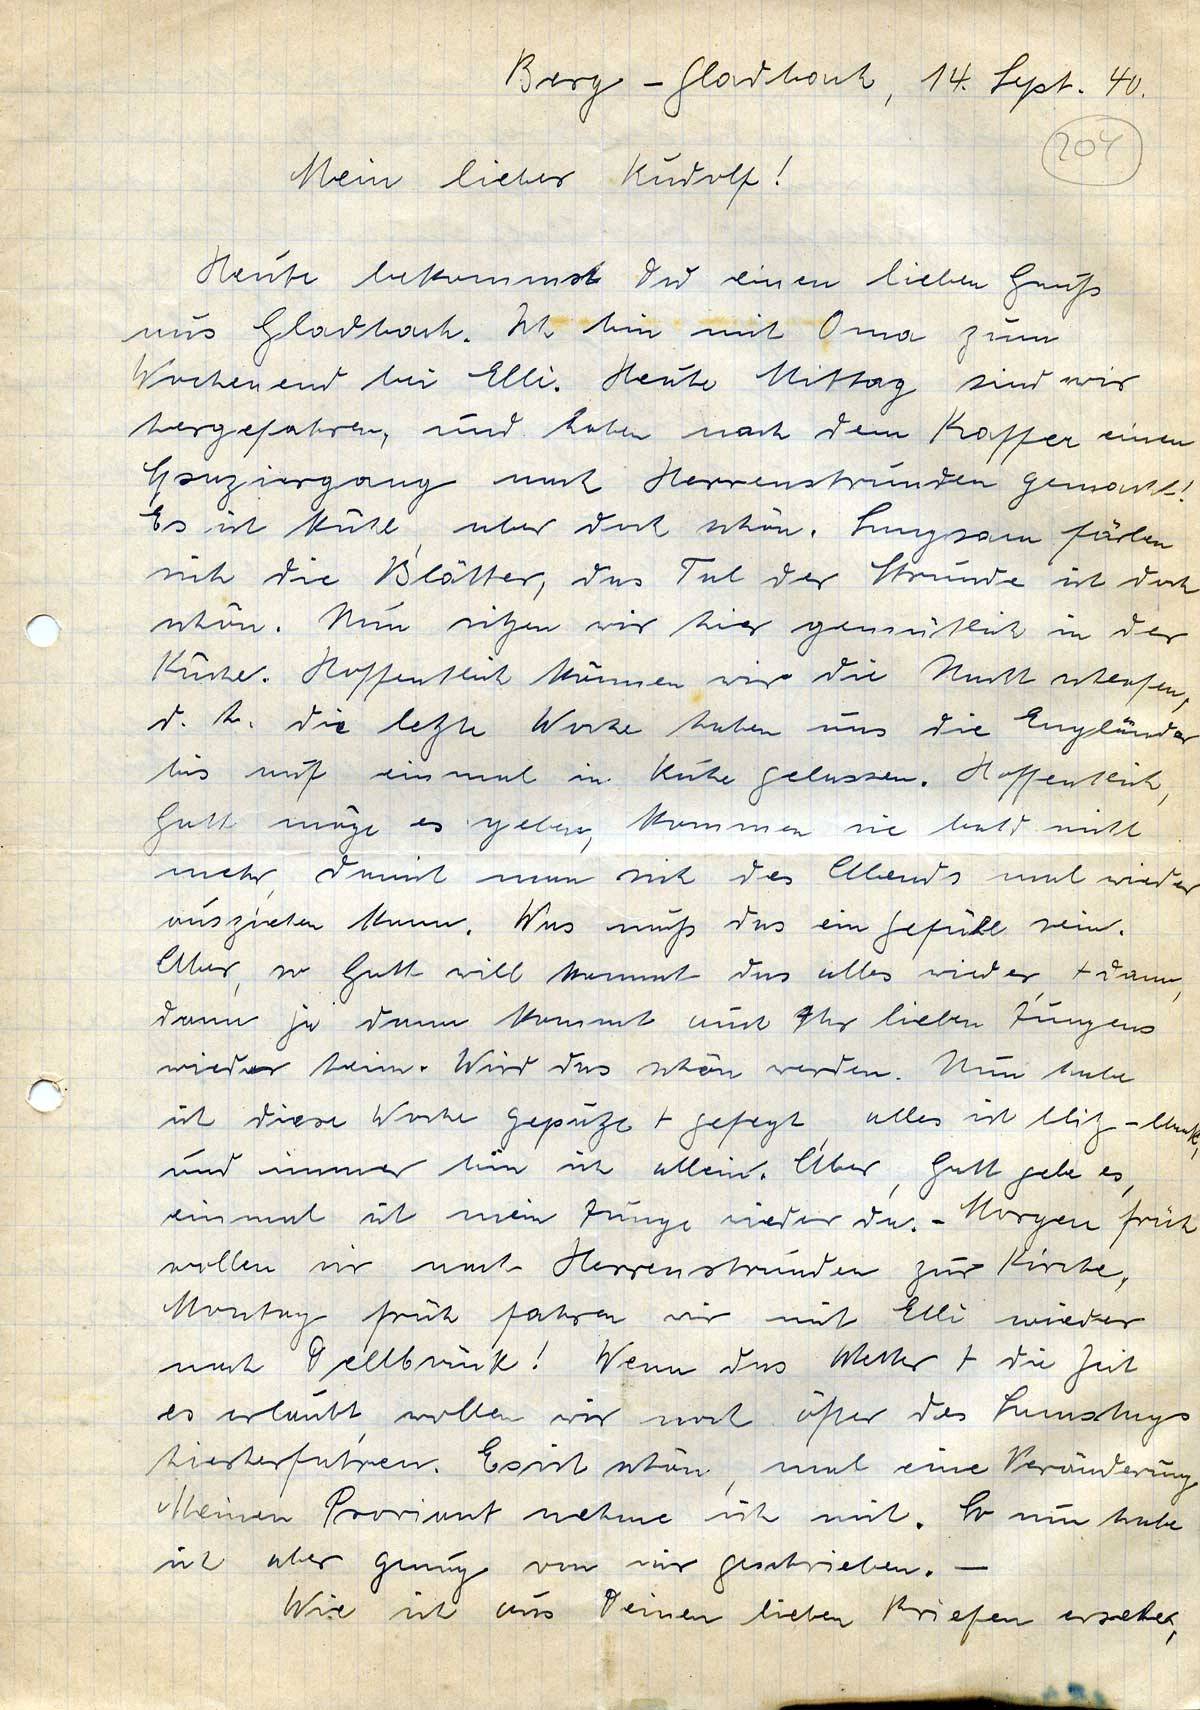 Berg-Gladbach, 14. Sept. 40.
204
Mein lieber Rudolf!
Heute bekommst Du einen lieben Gruß
aus Gladbach. Ich bin mit Oma zum
Wochenend bei Elli. Heute Mittag sind wir
hergefahren, und haben nach dem Kaffee einen
Spaziergang nach Herrenstrunden gemacht!
Es ist kühl, aber doch schön. Langsam färben
sich die Blätter, das Tal der Strunde ist doch
schön. Nun sitzen wir hier gemütlich in der
Küche. Hoffentlich können wir die Nacht schlafen,
d. h. die letzte Woche haben uns die Engländer
bis auf einmal in Ruhe gelassen. Hoffentlich,
Gott möge es geben, kommen sie bald nicht
mehr, damit man sich des Abends mal wieder
ausziehen kann. Was muß das ein Gefühl sein.
Aber, so Gott will kommt das alles wieder, + dann,
dann ja dann kommt auch Ihr lieben Jungens
wieder heim. Wird das schön werden. Nun habe
ich diese Woche geputzt + gefegt, alles ist blitz-blank,
und immer bin ich allein. Aber, Gott gebe es,
einmal ist mein Junge wieder da. - Morgen früh
wollen wir nach Herrenstrunden zur Kirche,
Montag früh fahren wir mit Elli wieder
nach Dellbrück! Wenn das Wetter + die Zeit
es erlaubt, wollen wir noch öfter des Samstags
hierherfahren. Es ist schön, mal eine Veränderung
Meinen Proviant nehme ich mit. So nun habe
ich aber genug von mir geschrieben. —
Wie ich aus Deinen lieben Briefen ersehe,